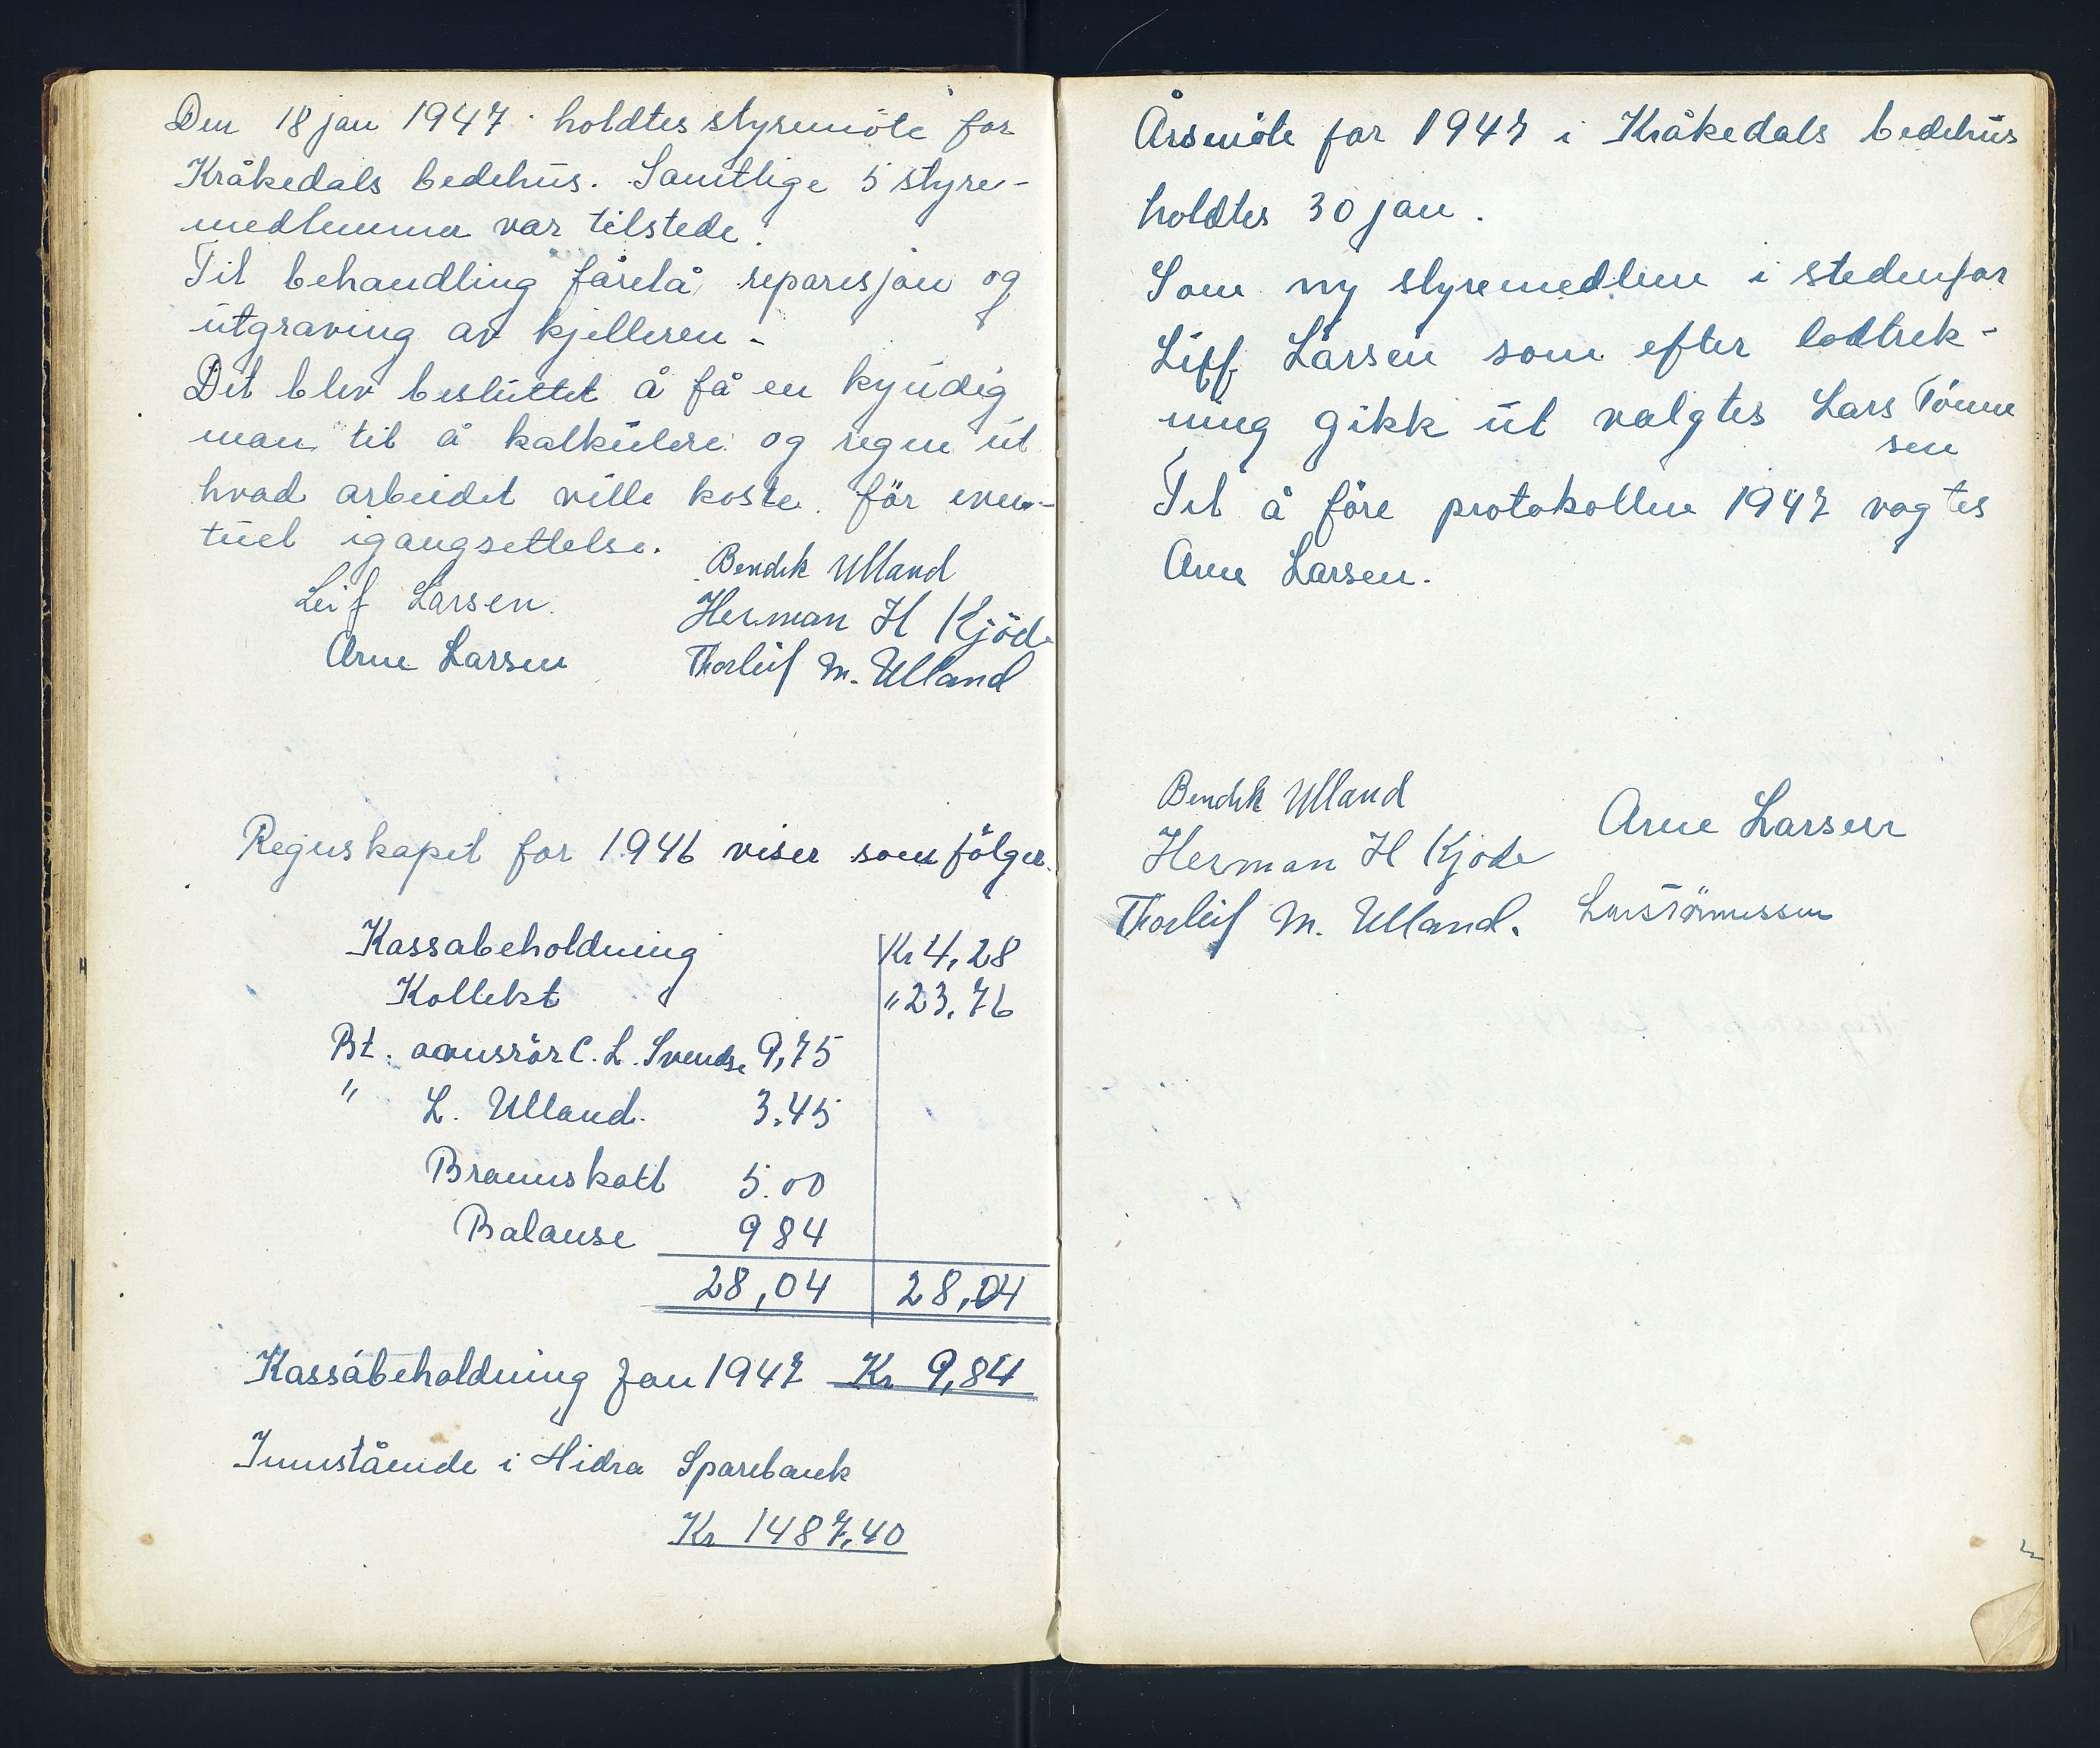 Den 18 jan 1947 holdtes styremöte for
Kråkedals bedehus. Samtlige 5 styre-
medlemmer var tilstede.
Til behandling forelå reparasjon og
utgraving av kjelleren.
Det blev besluttet å få en kyndig
man til å kalkulere og regne ut
hvad arbeidet ville koste för even-
tuel igangsettelse.
Bendik Ulland
Leif Larsen
Herman H Kjöde
Arne Larsen
Thorleif M. Ulland
Regnskapet for 1946 viser som fölger.
Kassabeholdning Kr 4,28
Kollekt " 23,76
Bt. ovnsrör C. L. Svendsen 9,75
" L. Ulland. 3.45
Brannskatt 5.00
Balanse 984
28,04 28,04
Kassabeholdning Jan 1947 Kr 9,84
Innestående i Hidra Sparebank
Kr 1487,40
Årsmöte for 1947 i Kråkedals bedehus
holdtes 30 jan.
Som ny styremedlem i stedenfor
Liff Larsen som efter lodtrek-
ning gikk ut valgtes Lars Tönne
sen
Til å före protokollen 1947 vagtes
Arne Larsen.
Bendik Ulland
Arne Larsen
Herman H Kjöde
Thorleif M. Ulland.
Lars Tönnessen